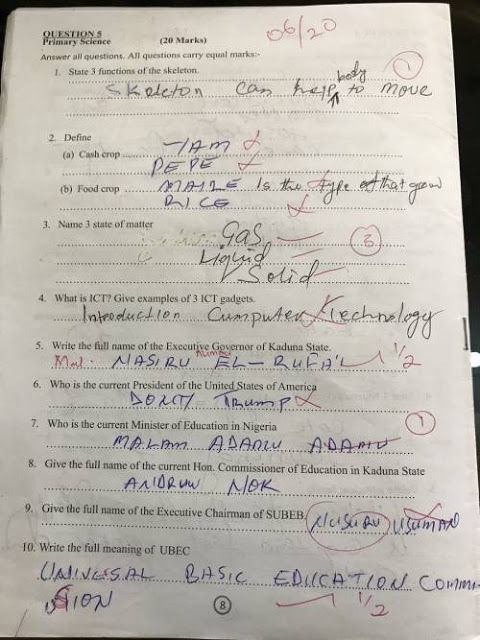 QUESTION 5
Primary Science (20 Marks)
06/20
Answer all questions. All questions carry equal marks:-
1. State 3 functions of the skeleton.
1
body
Skeleton can help to move
2. Define
(a) Cash crop YAM
PEPE
(b) Food crop MAIZE is the type of that grow
RICE
3. Name 3 state of matter
Gas
Liquid
Solid
3
4. What is ICT? Give examples of 3 ICT gadgets.
Introduction Cumputer Technology
5. Write the full name of the Executive Governor of Kaduna State.
Mal. NASIRU EL-RUFA'I 1/2
6. Who is the current President of the United States of America
Trump
7. Who is the current Minister of Education in Nigeria
1
MALAM ADAMU ADAMU
8. Give the full name of the current Hon. Commissioner of Education in Kaduna State
NOK
9. Give the full name of the Executive Chairman of SUBEB.
USUMAN
10. Write the full meaning of UBEC
BASIC EDUCATION COMMI
SION
1/2
8